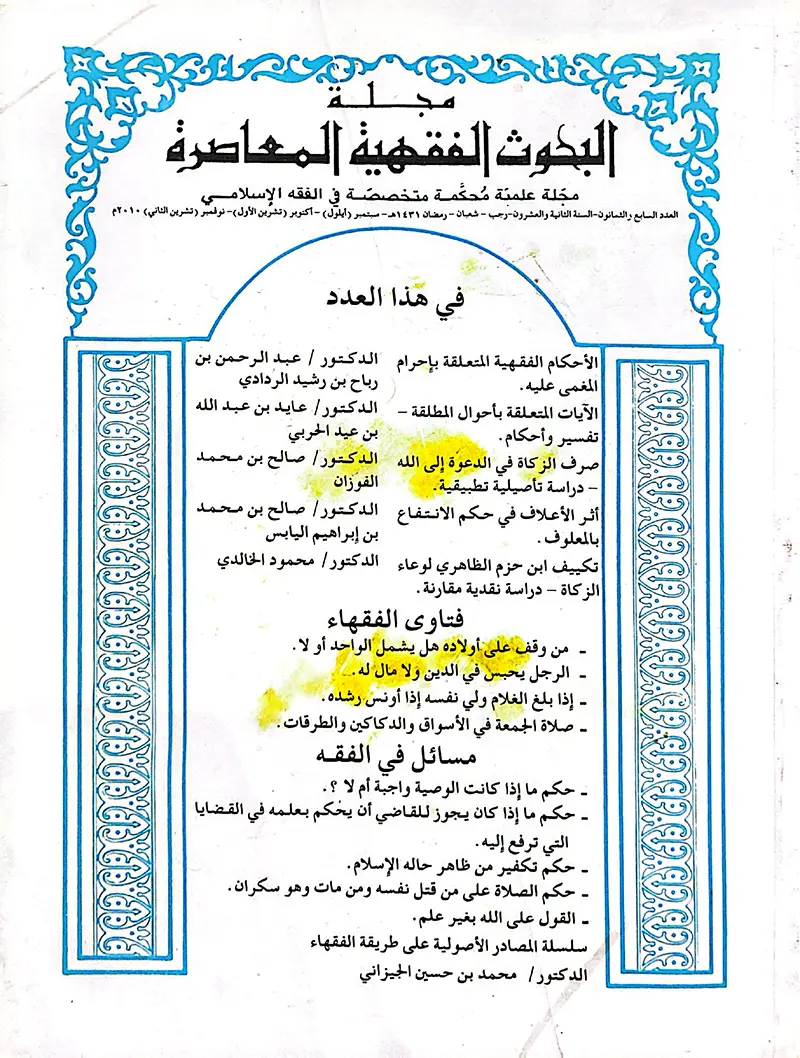 مجلة
البحوث الفقهية المعاصرة
مجلة علمية مُحكَّمة متخصصة في الفقه الإسلامي
العدد السابع والثمانون-السنة الثانية والعشرون-رجب - شعبان - رمضان ١٤٣١هـ- سبتمبر (أيلول) - أكتوبر (تشرين الأول)- نوفمبر (تشرين الثاني) ٢٠١٠م
في هذا العدد
الأحكام الفقهية المتعلقة بإحرام الدكتور / عبد الرحمن بن
المغمى عليه. رباح بن رشيد الردادي
الآيات المتعلقة بأحوال المطلقة – الدكتور/ عايد بن عبد الله
تفسير وأحكام. بن عيد الحربي
صرف الزكاة في الدعوة إلى الله الدكتور/ صالح بن محمد
– دراسة تأصيلية تطبيقية. الفوزان
أثر الأعلاف في حكم الانتفاع الدكتور/ صالح بن محمد
بالمعلوف. بن إبراهيم اليابس
تكييف ابن حزم الظاهري لوعاء الدكتور/ محمود الخالدي
الزكاة – دراسة نقدية مقارنة.
فتاوى الفقهاء
- من وقف على أولاده هل يشمل الواحد أو لا.
- الرجل يحبس في الدين ولا مال له.
- إذا بلغ الغلام ولي نفسه إذا أونس رشده.
- صلاة الجمعة في الأسواق والدكاكين والطرقات.
مسائل في الفقه
- حكم ما إذا كانت الوصية واجبة أم لا ؟.
- حكم ما إذا كان يجوز للقاضي أن يحكم بعلمه في القضايا
التي ترفع إليه.
- حكم تكفير من ظاهر حاله الإسلام.
- حكم الصلاة على من قتل نفسه ومن مات وهو سكران.
- القول على الله بغير علم.
سلسلة المصادر الأصولية على طريقة الفقهاء
الدكتور/ محمد بن حسين الجيزاني